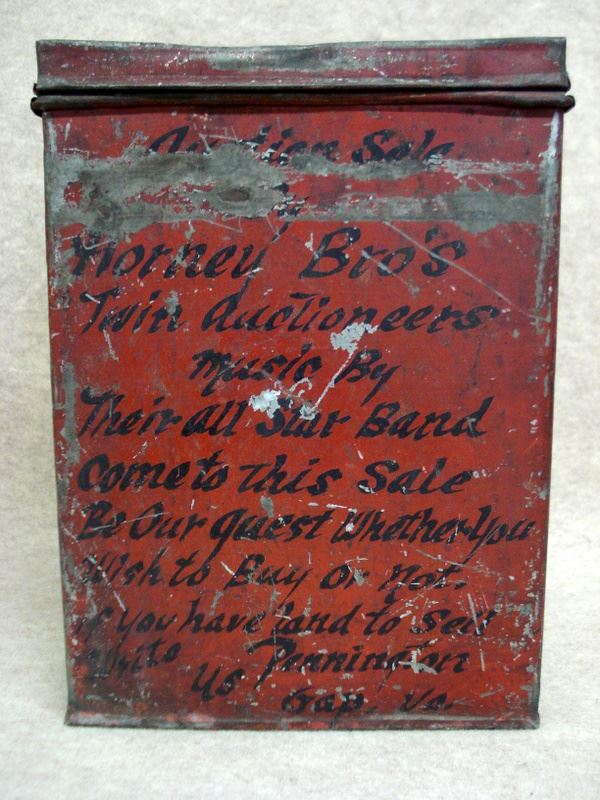 Auction Sale
Horney Bro's
Twin Auctioneers
Music By
Their all Star Band
Come to This Sale
Be Our guest Whether you
Wish to Buy or Not.
if you have land to Sell
Write Pennington
us Gap. Va.